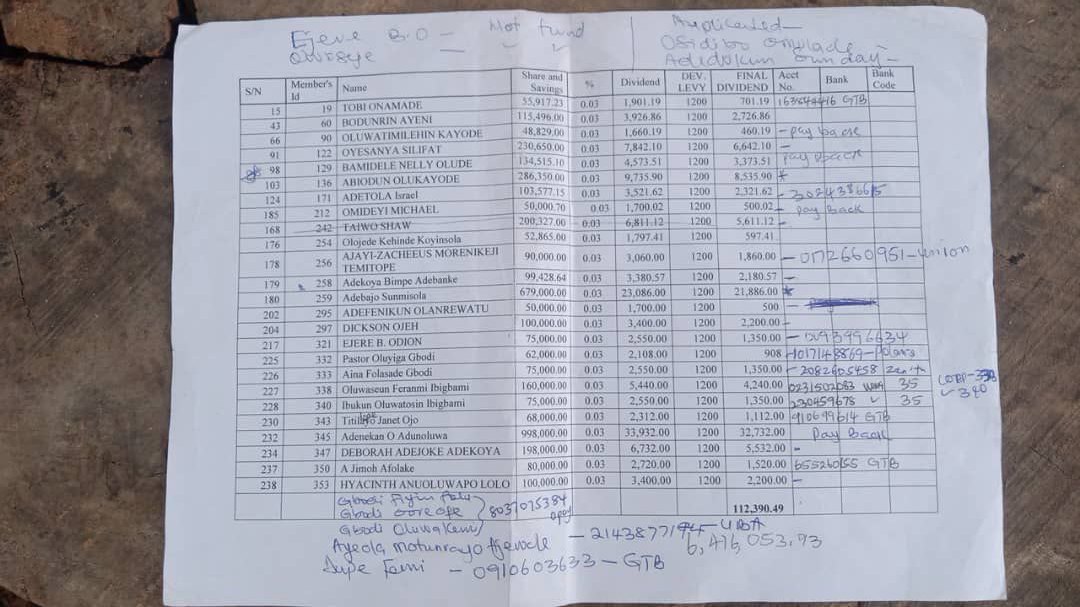 Ejere B.O - Not fund
Applicated -
S/N Member's Id Name Share and Savings % Dividend DEV. LEVY FINAL DIVIDEND Acct No. Bank Bank Code
15 19 TOBI ONAMADE 55,917.23 0.03 1,901.19 1200 701.19 GTB
43 60 BODUNRIN AYENI 115,496.00 0.03 3,926.86 1200 2,726.86
66 90 OLUWATIMILEHIN KAYODE 48,829.00 0.03 1,660.19 1200 460.19 - pay back
91 122 OYESANYA SILIFAT 230,650.00 0.03 7,842.10 1200 6,642.10 -
98 129 BAMIDELE NELLY OLUDE 134,515.10 0.03 4,573.51 1200 3,373.51 pay back
103 136 ABIODUN OLUKAYODE 286,350.00 0.03 9,735.90 1200 8,535.90 *
124 171 ADETOLA Israel 103,577.15 0.03 3,521.62 1200 2,321.62
185 212 OMIDEYI MICHAEL 50,000.70 0.03 1,700.02 1200 500.02 - Pay Back
168 242 TAIWO SHAW 200,327.00 0.03 6,811.12 1200 5,611.12 -
176 254 Olojede Kehinde Koyinsola 52,865.00 0.03 1,797.41 1200 597.41
178 256 AJAYI-ZACHEEUS MORENIKEJI TEMITOPE 90,000.00 0.03 3,060.00 1200 1,860.00 - 0172660951 - union
179 258 Adekoya Bimpe Adebanke 99,428.64 0.03 3,380.57 1200 2,180.57 -
180 259 Adebajo Sunmisola 679,000.00 0.03 23,086.00 1200 21,886.00 *
202 295 ADEFENIKUN OLANREWATU 50,000.00 0.03 1,700.00 1200 500 -
204 297 DICKSON OJEH 100,000.00 0.03 3,400.00 1200 2,200.00 -
217 321 EJERE B. ODION 75,000.00 0.03 2,550.00 1200 1,350.00 - 0093996634
225 332 Pastor Oluyiga Gbodi 62,000.00 0.03 2,108.00 1200 908 1017148869 - Polaris
226 333 Aina Folasade Gbodi 75,000.00 0.03 2,550.00 1200 1,350.00 - 2082605458 Zenith
227 338 Oluwaseun Feranmi Ibigbami 160,000.00 0.03 5,440.00 1200 4,240.00 0231502083 35
228 340 Ibukun Oluwatosin Ibigbami 75,000.00 0.03 2,550.00 1200 1,350.00 230459675 35
230 343 Janet Ojo 68,000.00 0.03 2,312.00 1200 1,112.00 910699614 GTB
232 345 Adenekan O Adunoluwa 998,000.00 0.03 33,932.00 1200 32,732.00 Pay Back
234 347 DEBORAH ADEJOKE ADEKOYA 198,000.00 0.03 6,732.00 1200 5,532.00 -
237 350 A Jimoh Afolake 80,000.00 0.03 2,720.00 1200 1,520.00 GTB
238 353 HYACINTH ANUOLUWAPO LOLO 100,000.00 0.03 3,400.00 1200 2,200.00 -
112,390.49
Gbodi
Gbodi ooreope 8037075384
Gbodi Oluwakemi
Ayeola Motunrayo - UBA
6,416,053.93
Dupe Femi - 0910603633 - GTB